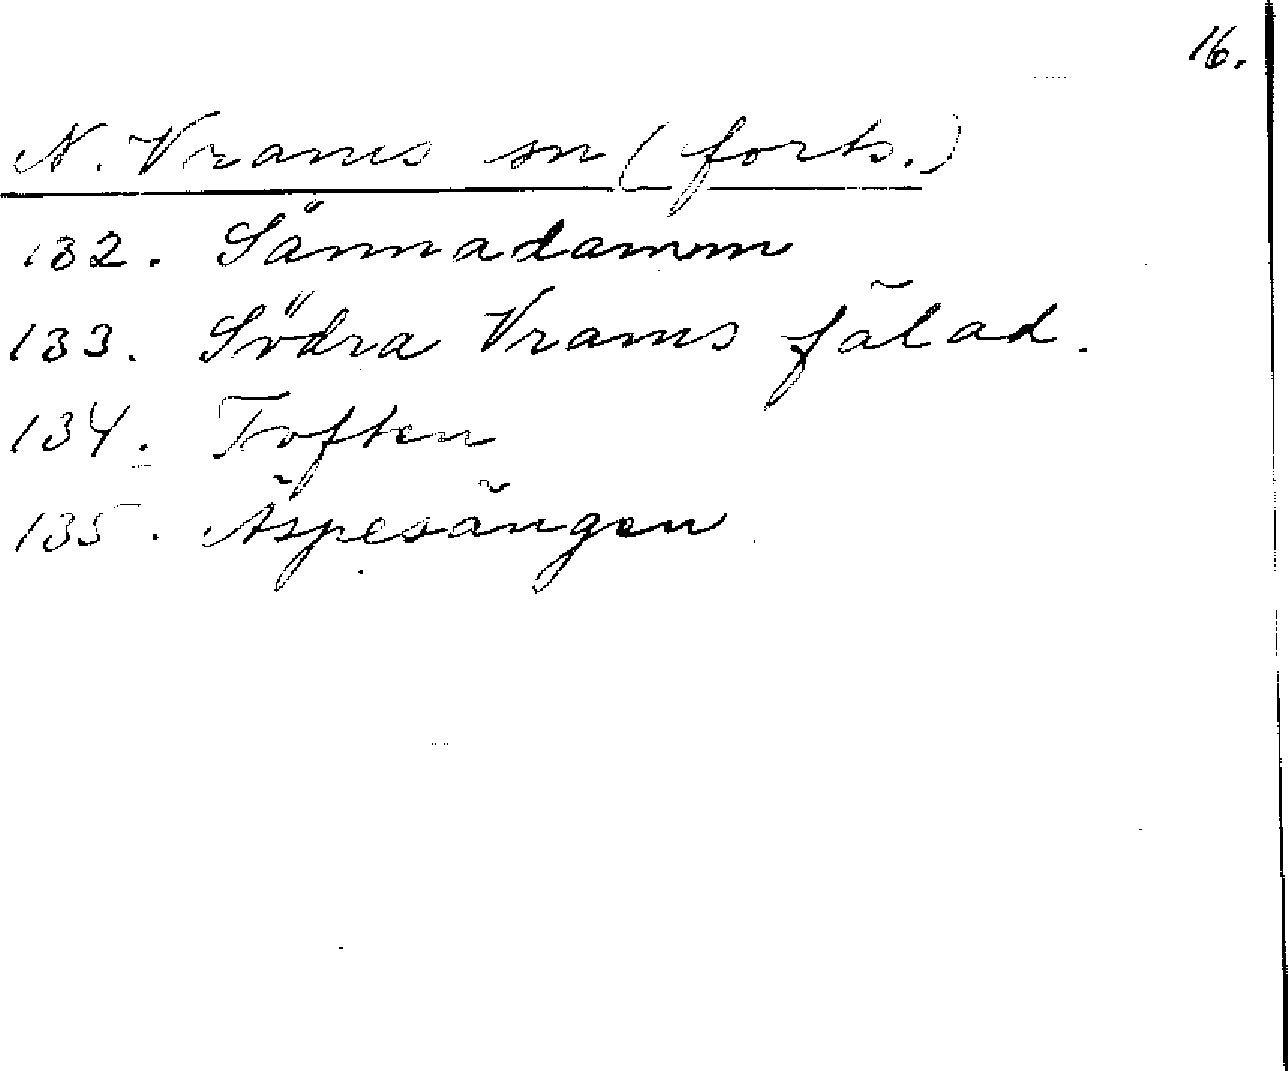 16.
N. Vrams sn (forts.)
132. Sännadamm
133. Södra Vrams fälad.
134. Toften
135. Äspesängen